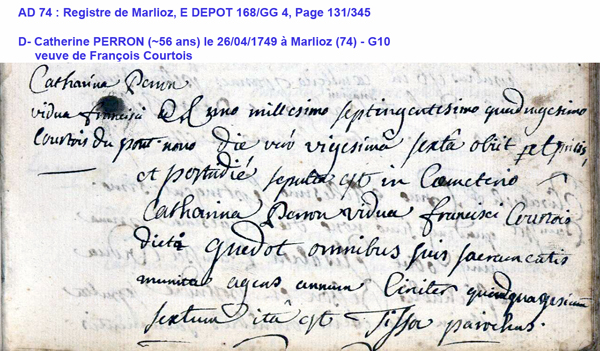 AD 74 : Registre de Marlioz, E DEPOT 168/GG 4, Page 131/345
D- Catherine PERRON (~56 ans) le 26/04/1749 à Marlioz (74) - G10
veuve de François Courtois
Catharina Perron
vidua francisci
Courtois du pont novo
millesimo septingentesimo quadragesimo
die vero vigesimâ sextâ obiit
et postridié sepulta est in Cœmeterio
Catharina Perron vidua francisci Courtois
dicta quedot omnibus suis sacramentis
munita agens annum circiter quinquagesimum
sextum itâ est Tissot parochus.